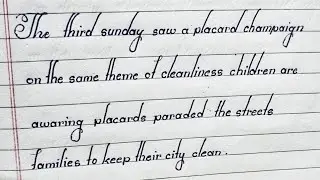 The third sunday saw a placard champaign
on the same theme of cleanliness children are
awaring placards paraded the streets
families to keep their city clean.